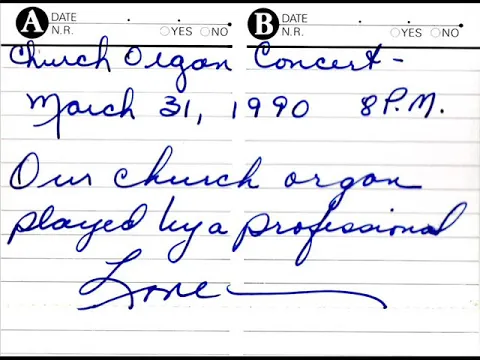 A DATE B DATE
N.R. YES NO N.R. YES NO
Church Organ Concert –
March 31, 1990 8 P.M.
Our church organ
played by a professional